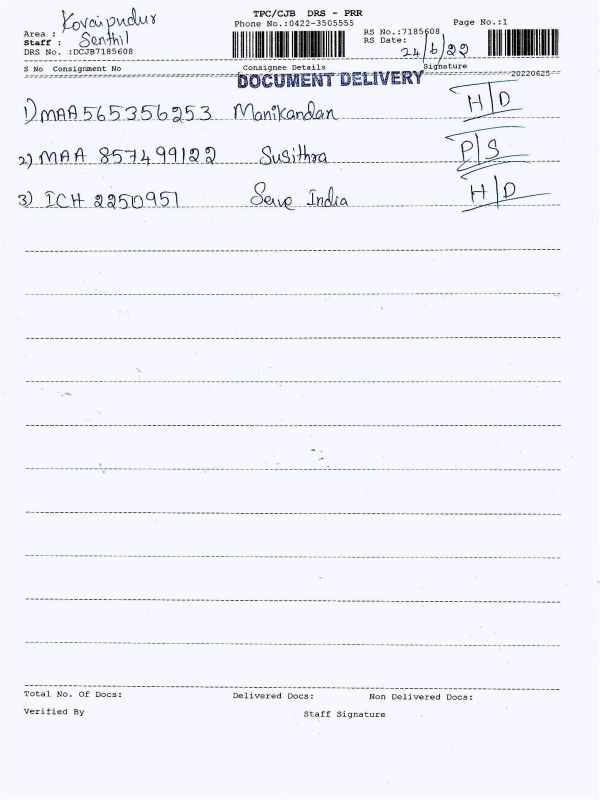 TPC/CJB DRS - PRR
Area : Kovaipudur Phone No.:0422-3505555 RS No.:7185608 Page No.:1
Staff : Senthil RS Date: 24/6/22
DRS No. :DCJB7185608
S No Consignment No Consignee Details Signature
DOCUMENT DELIVERY 20220625
1) MAA 565356253 Manikandan H/D
2) MAA 857499122 Susithra P/S
3) ICH 2250951 Serve India H/D
Total No. Of Docs: Delivered Docs: Non Delivered Docs:
Verified By Staff Signature